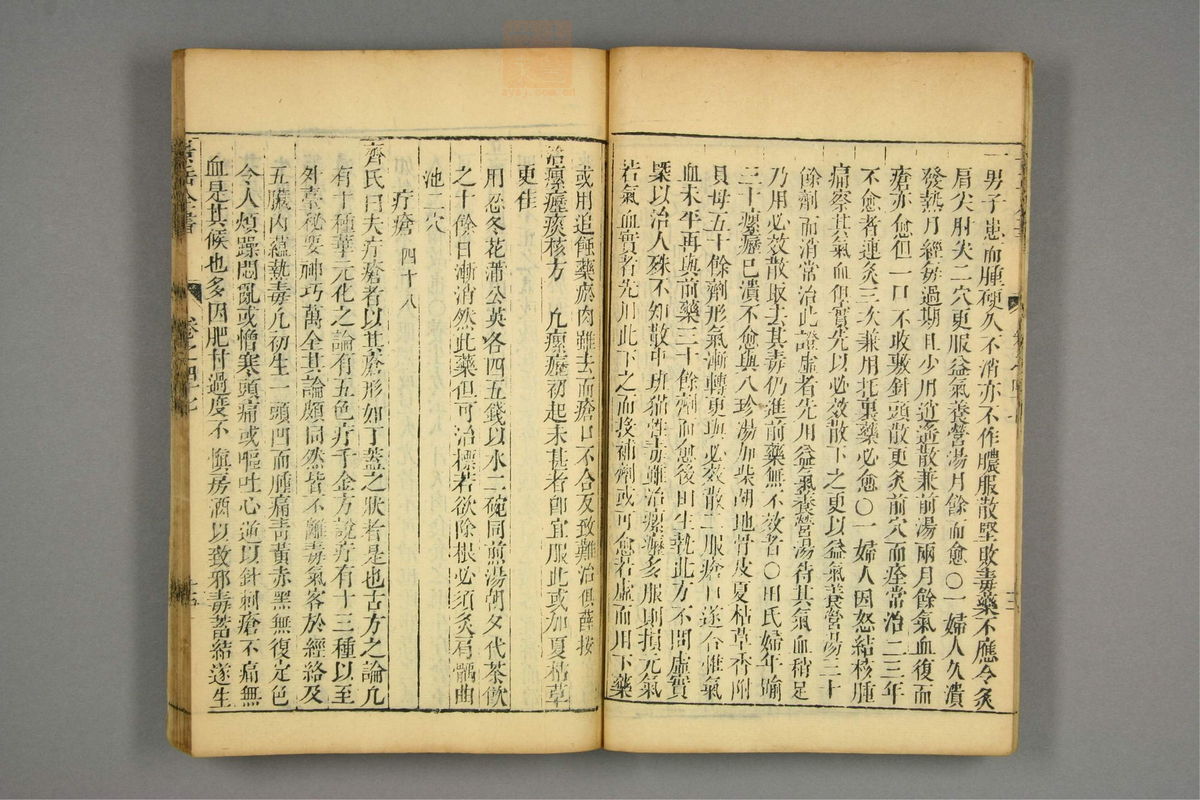 一男子患而腫硬久不消亦不作膿服散堅敗毒藥不應令灸
肩尖肘尖二穴更服益氣養營湯月餘而愈〇一婦人久潰
發熱月經每過期且少用逍遙散兼前湯兩月餘氣血復而
瘡亦愈但一口不收敷針頭散更灸前穴而痊常治二三年
不愈者連灸三次兼用托裏藥必愈〇一婦人因怒結核腫
痛察其氣血俱實先以必效散下之更以益氣養營湯三十
餘劑而消常治此證虛者先用益氣養營湯待其氣血稍足
乃用必效散取去其毒仍進前藥無不效者〇田氏婦年踰
三十瘰癧已潰不愈與八珍湯加柴胡地骨皮夏枯草香附
貝母五十餘劑形氣漸轉更與必效散二服瘡口遂合惟氣
血未平再與前藥三十餘劑而愈後田生執此方不問虛實
槩以治人殊不知散中班猫性毒雖治瘰癧多服則損元氣
若氣血實者先用此下之而投補劑或可愈若虛而用下藥
或用追蝕藥瘀肉雖去而瘡口不合反致難治俱薛按
治瘰癧痰核方 凡瘰癧初起未甚者卽宜服此或加夏枯草
更佳
用忍冬花蒲公英各四五錢以水二碗同煎湯朝夕代茶飲
之十餘日漸消然此藥但可治標若欲除根必須灸肩髃曲
池二穴
疔瘡 四十八
齊氏曰夫疔瘡者以其瘡形如丁蓋之狀者是也古方之論凡
有十種華元化之論有五色疔千金方說疔有十三種以至
外臺秘要神巧萬全其論頗同然皆不離毒氣客於經絡及
五臟内蘊熱毒凡初生一頭凹而腫痛青黃赤黑無復定色
令人煩躁悶亂或憎寒頭痛或嘔吐心逆以針刺瘡不痛無
血是其候也多因肥甘過度不愼房酒以致邪毒蓄結遂生
景岳全書
卷之四七